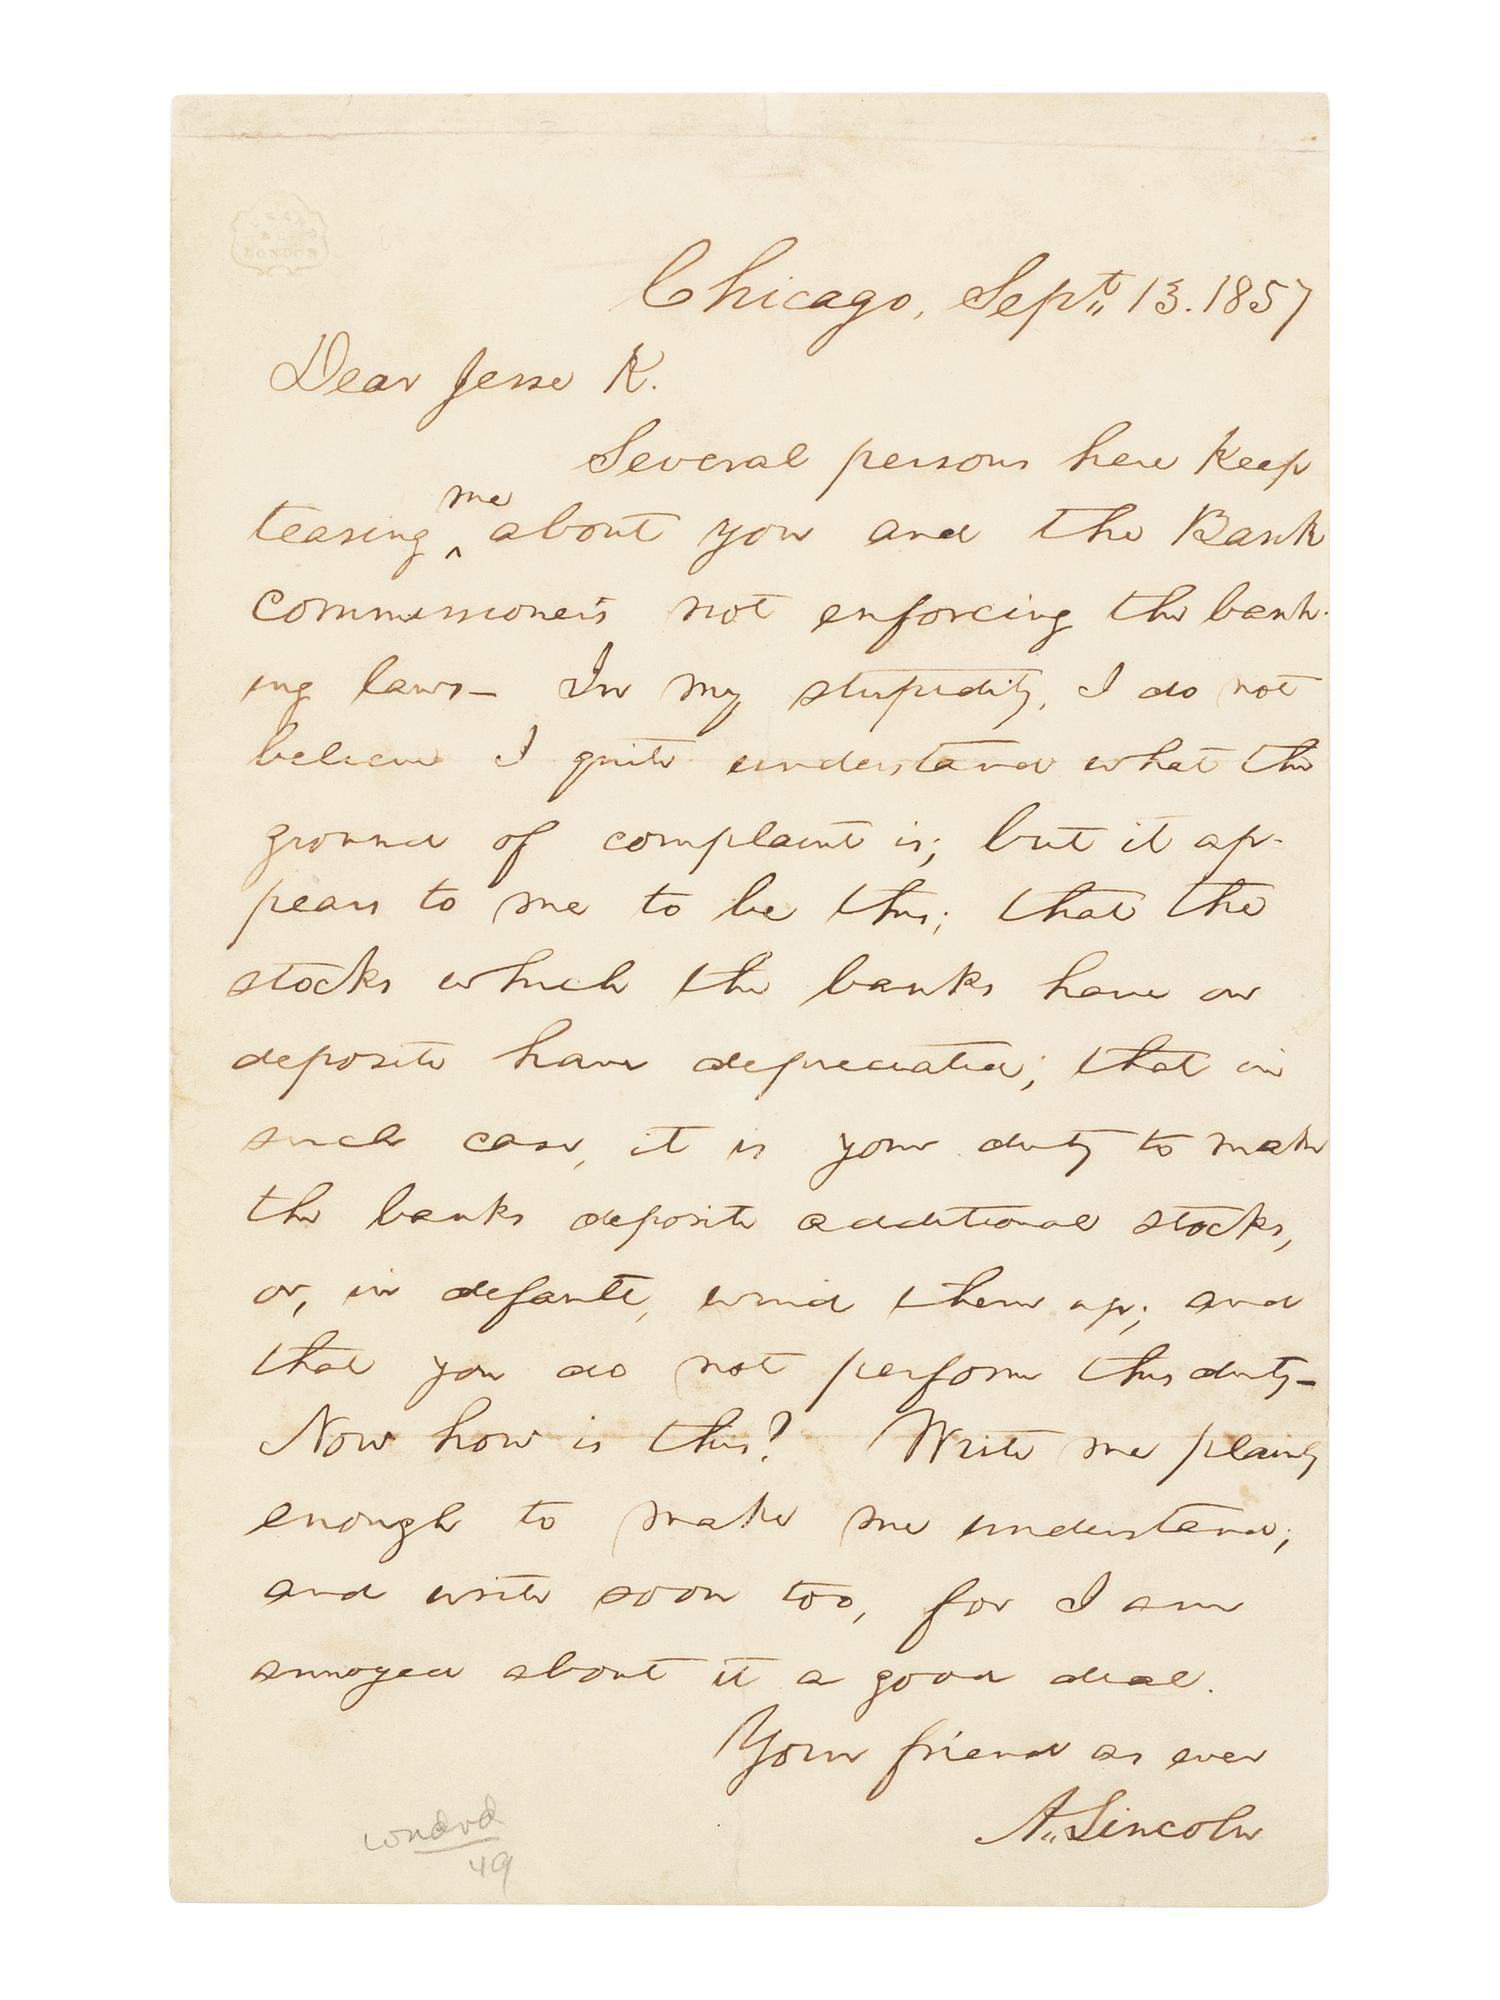 LONDON
Chicago, Sept. 13. 1857
Dear Jesse K.
Several persons here keep
me
teasing ^ about you and the Bank
commissioners not enforcing the bank-
ing laws— In my stupidity, I do not
believe I quite understand what the
ground of complaint is; but it ap-
pears to me to be this; that the
stocks which the banks have on
deposite have depreciated; that in
such case, it is your duty to make
the banks deposite additional stocks,
or, in default, wind them up; and
that you do not perform this duty—
Now how is this? Write me plainly
enough to make me understand;
and write soon too, for I am
annoyed about it a good deal.
Your friend as ever
A. Lincoln
49